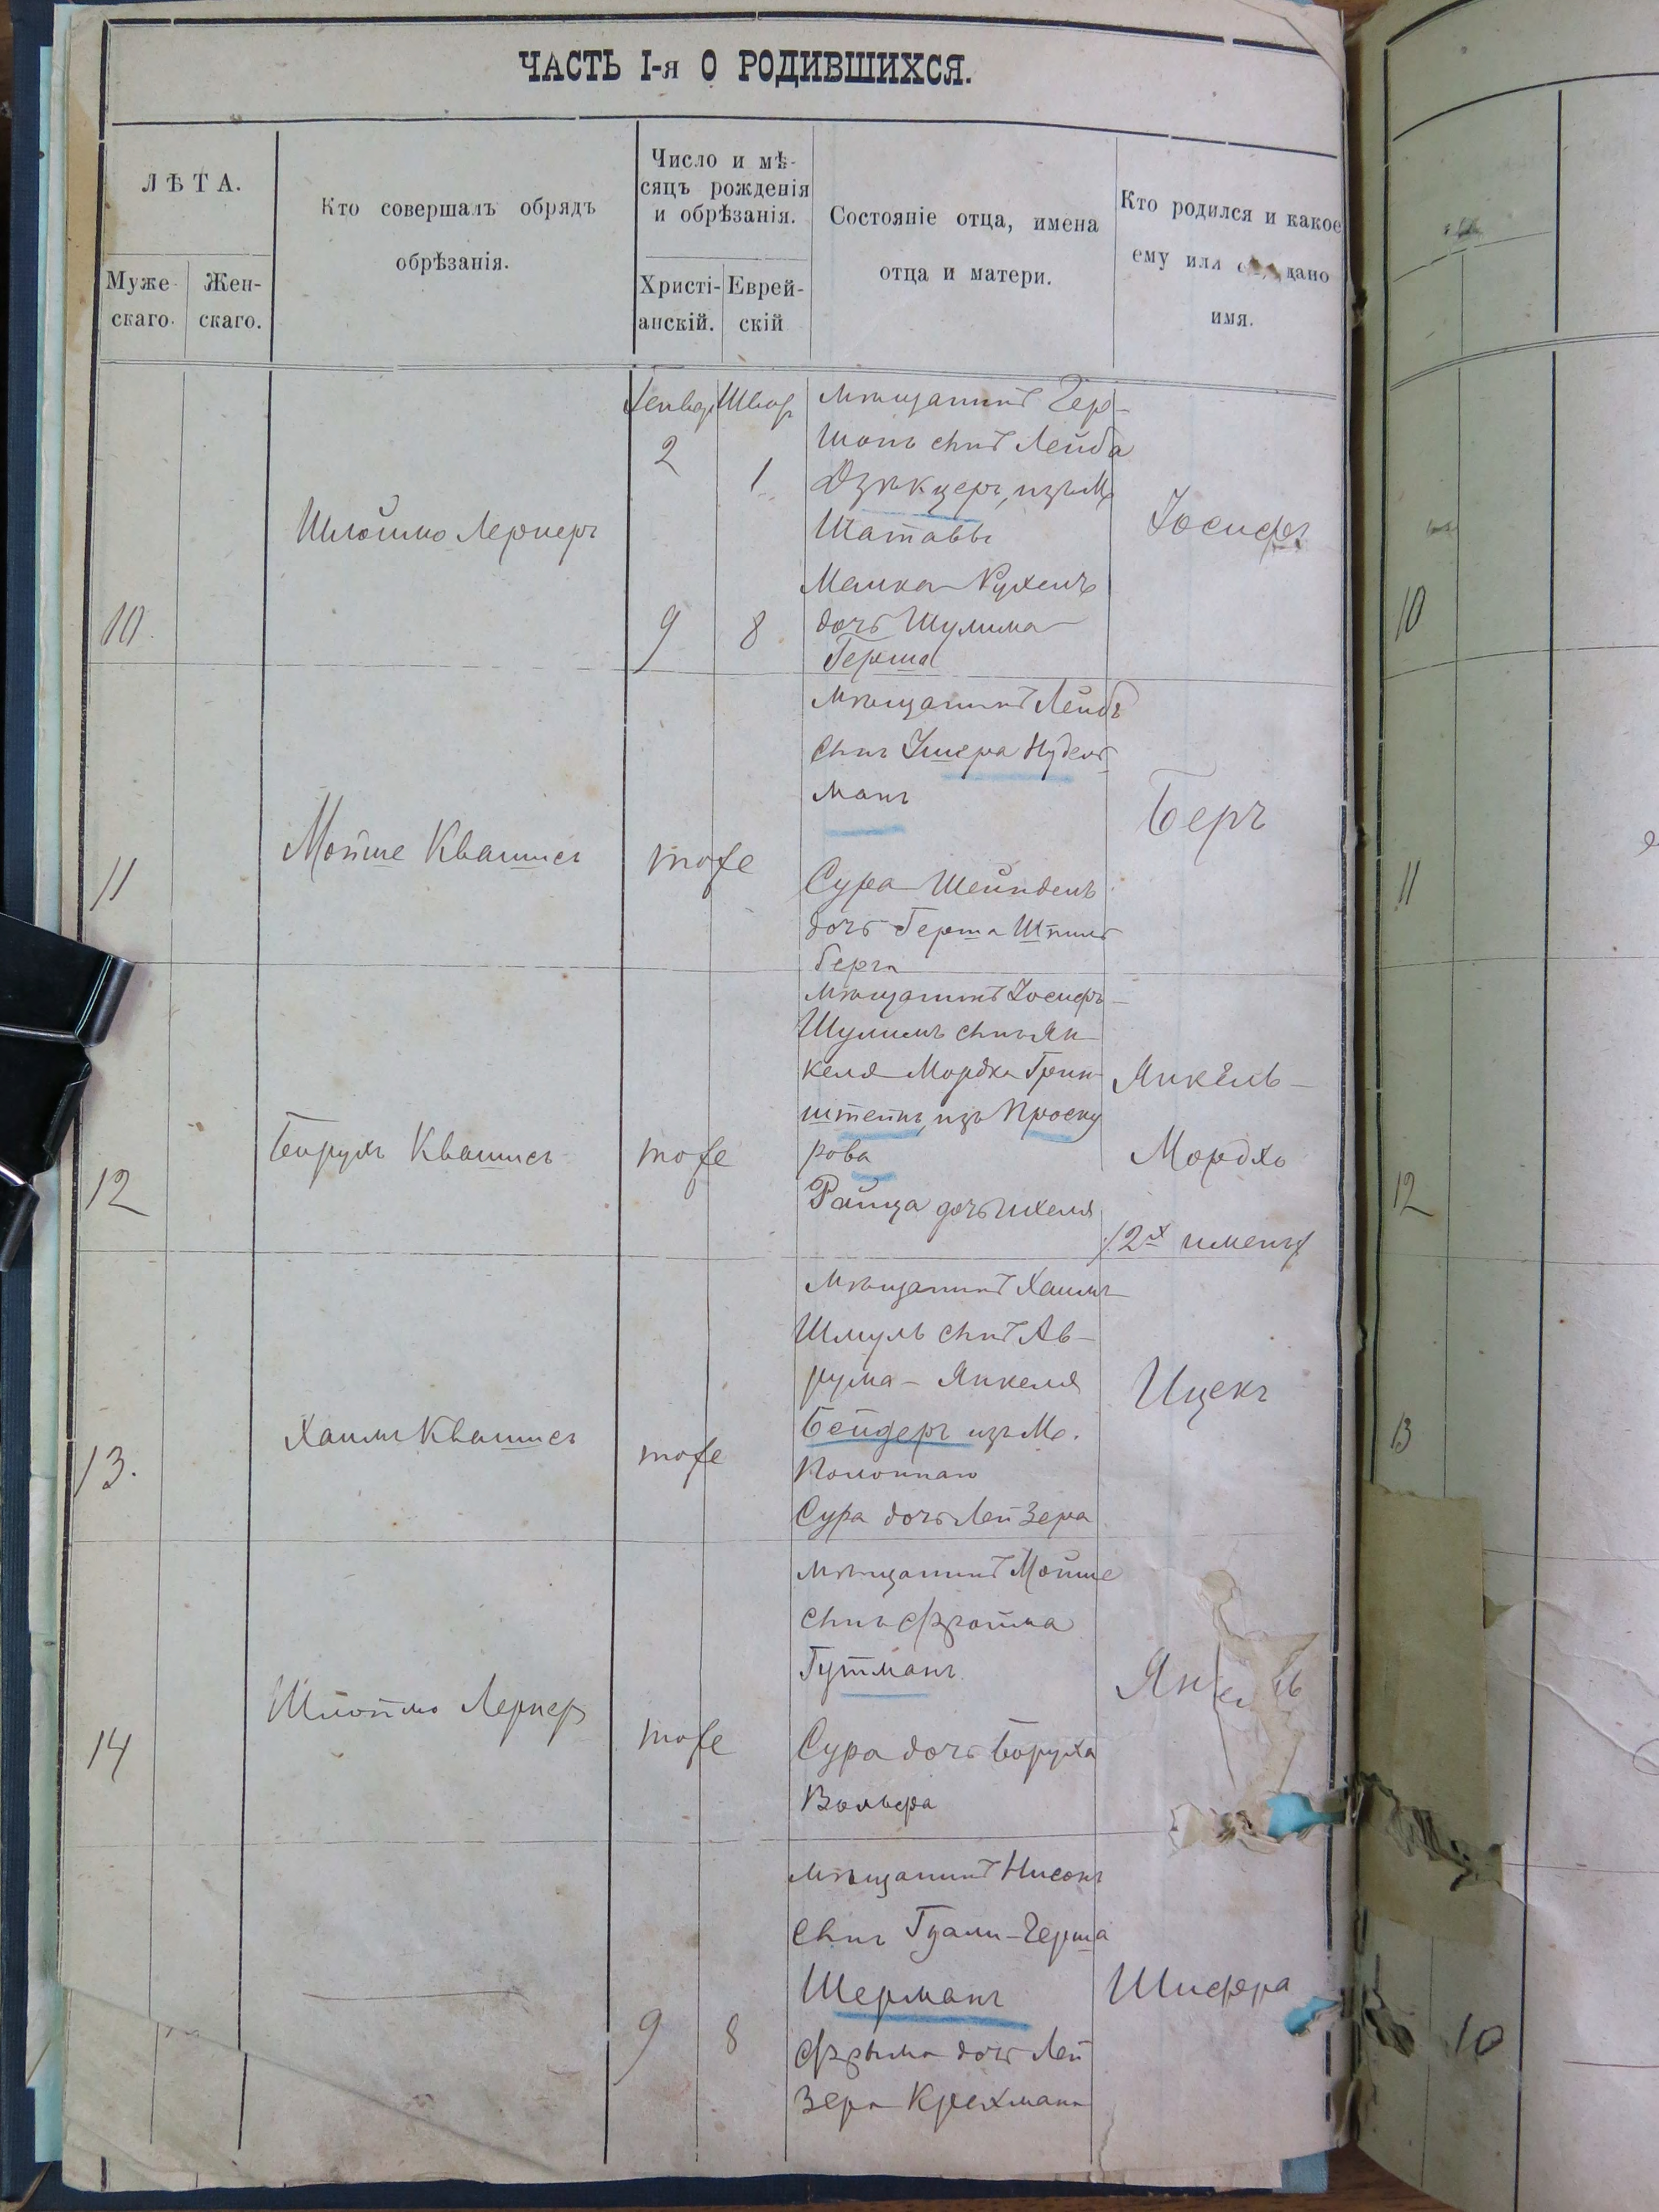 ЧАСТЬ I-я О РОДИВШИХСЯ.
ЛѢТА.
Муже-
скаго.
Жен-
скаго.
Кто совершалъ обрядъ
обрѣзанія.
Число и мѣ-
сяцъ рожденія
и обрѣзанія.
Христі-
анскій.
Еврей-
скій
Состояніе отца, имена
отца и матери.
Кто родился и какое
ему или дано
имя.
10
Шлоймо Лернеръ
Генвар
2
9
Шват
1
8
Мѣщанинъ Гер-
шонъ сынъ Лейба
Дзекцеръ, изъ М.
Шатавы
Малка Рухель
дочь Шулима
Герша
Іосифъ
10
11
Мойше Квашисъ
тоже
Мѣщанинъ Лейбъ
сынъ Ушера Нудель-
манъ
Сура Шейндель
дочь Герша Шпиль
берга
Беръ
11
12
Борухъ Квашисъ
тоже
Мѣщанинъ Іосифъ-
Шулимъ сынъ Ян-
келя Мордха Грин-
штейнъ, изъ Проску
рова
Райца дочь Ихеля
Янкель-
Мордхо
/2х именъ/
12
13.
Хаимъ Квашисъ
тоже
Мѣщанинъ Хаимъ-
Шмуль сынъ Ав-
рума-Янкеля
Бендеръ изъ М.
Полоннаго
Сура дочь Лейзера
Ицекъ
13
14
Шлоймо Лернеръ
тоже
Мѣщанинъ Мойше
сынъ Фройма
Гутманъ
Сура дочь Боруха
Вольфа
9
8
Мѣщанинъ Нисонъ
сынъ Гдали-Герша
Шерманъ
Фрыма дочь Лей
зера Крехмана
Шифра
10